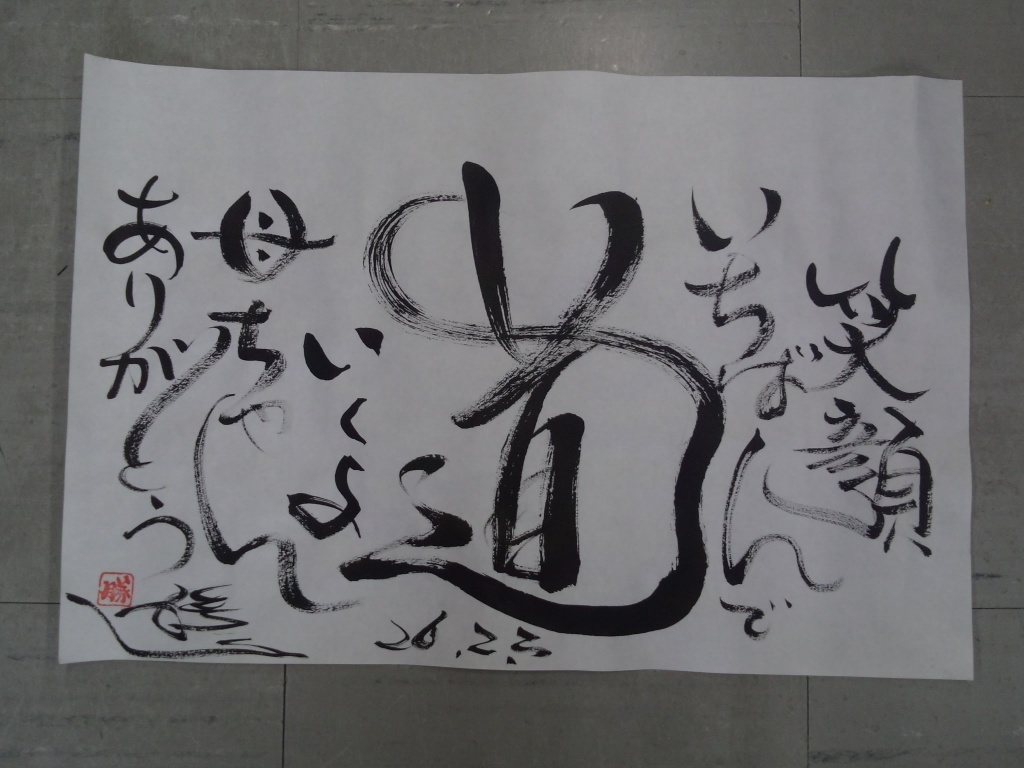 笑顔
いちばんで
道
いくよ
母ちゃん
ありがとう
26.2.3